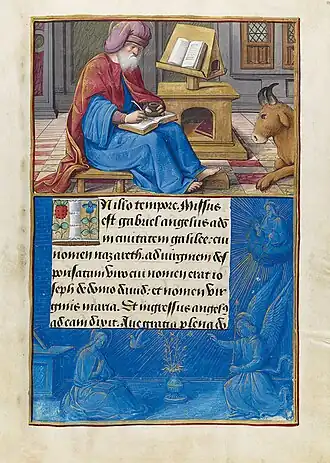 N illo tempore. Missus
est gabriel angelus a d
in ciuitatem galilee. cui
nomen nazareth. ad uirginem des
ponsatam uiro cui nomen erat io
seph de domo dauid: et nomen uir
ginis maria. Et ingressus angelꝰ
ad eam dixit. Aue gratia plena do